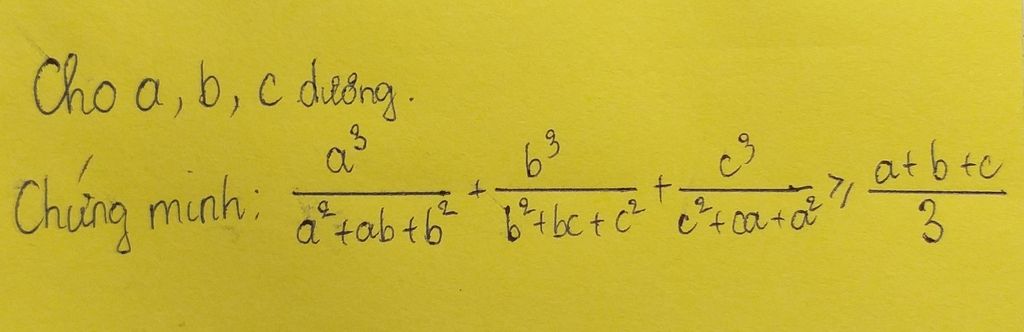 Cho a, b, c dương.
Chứng minh: a³/(a²+ab+b²) + b³/(b²+bc+c²) + c³/(c²+ca+a²) ≥ (a+b+c)/3